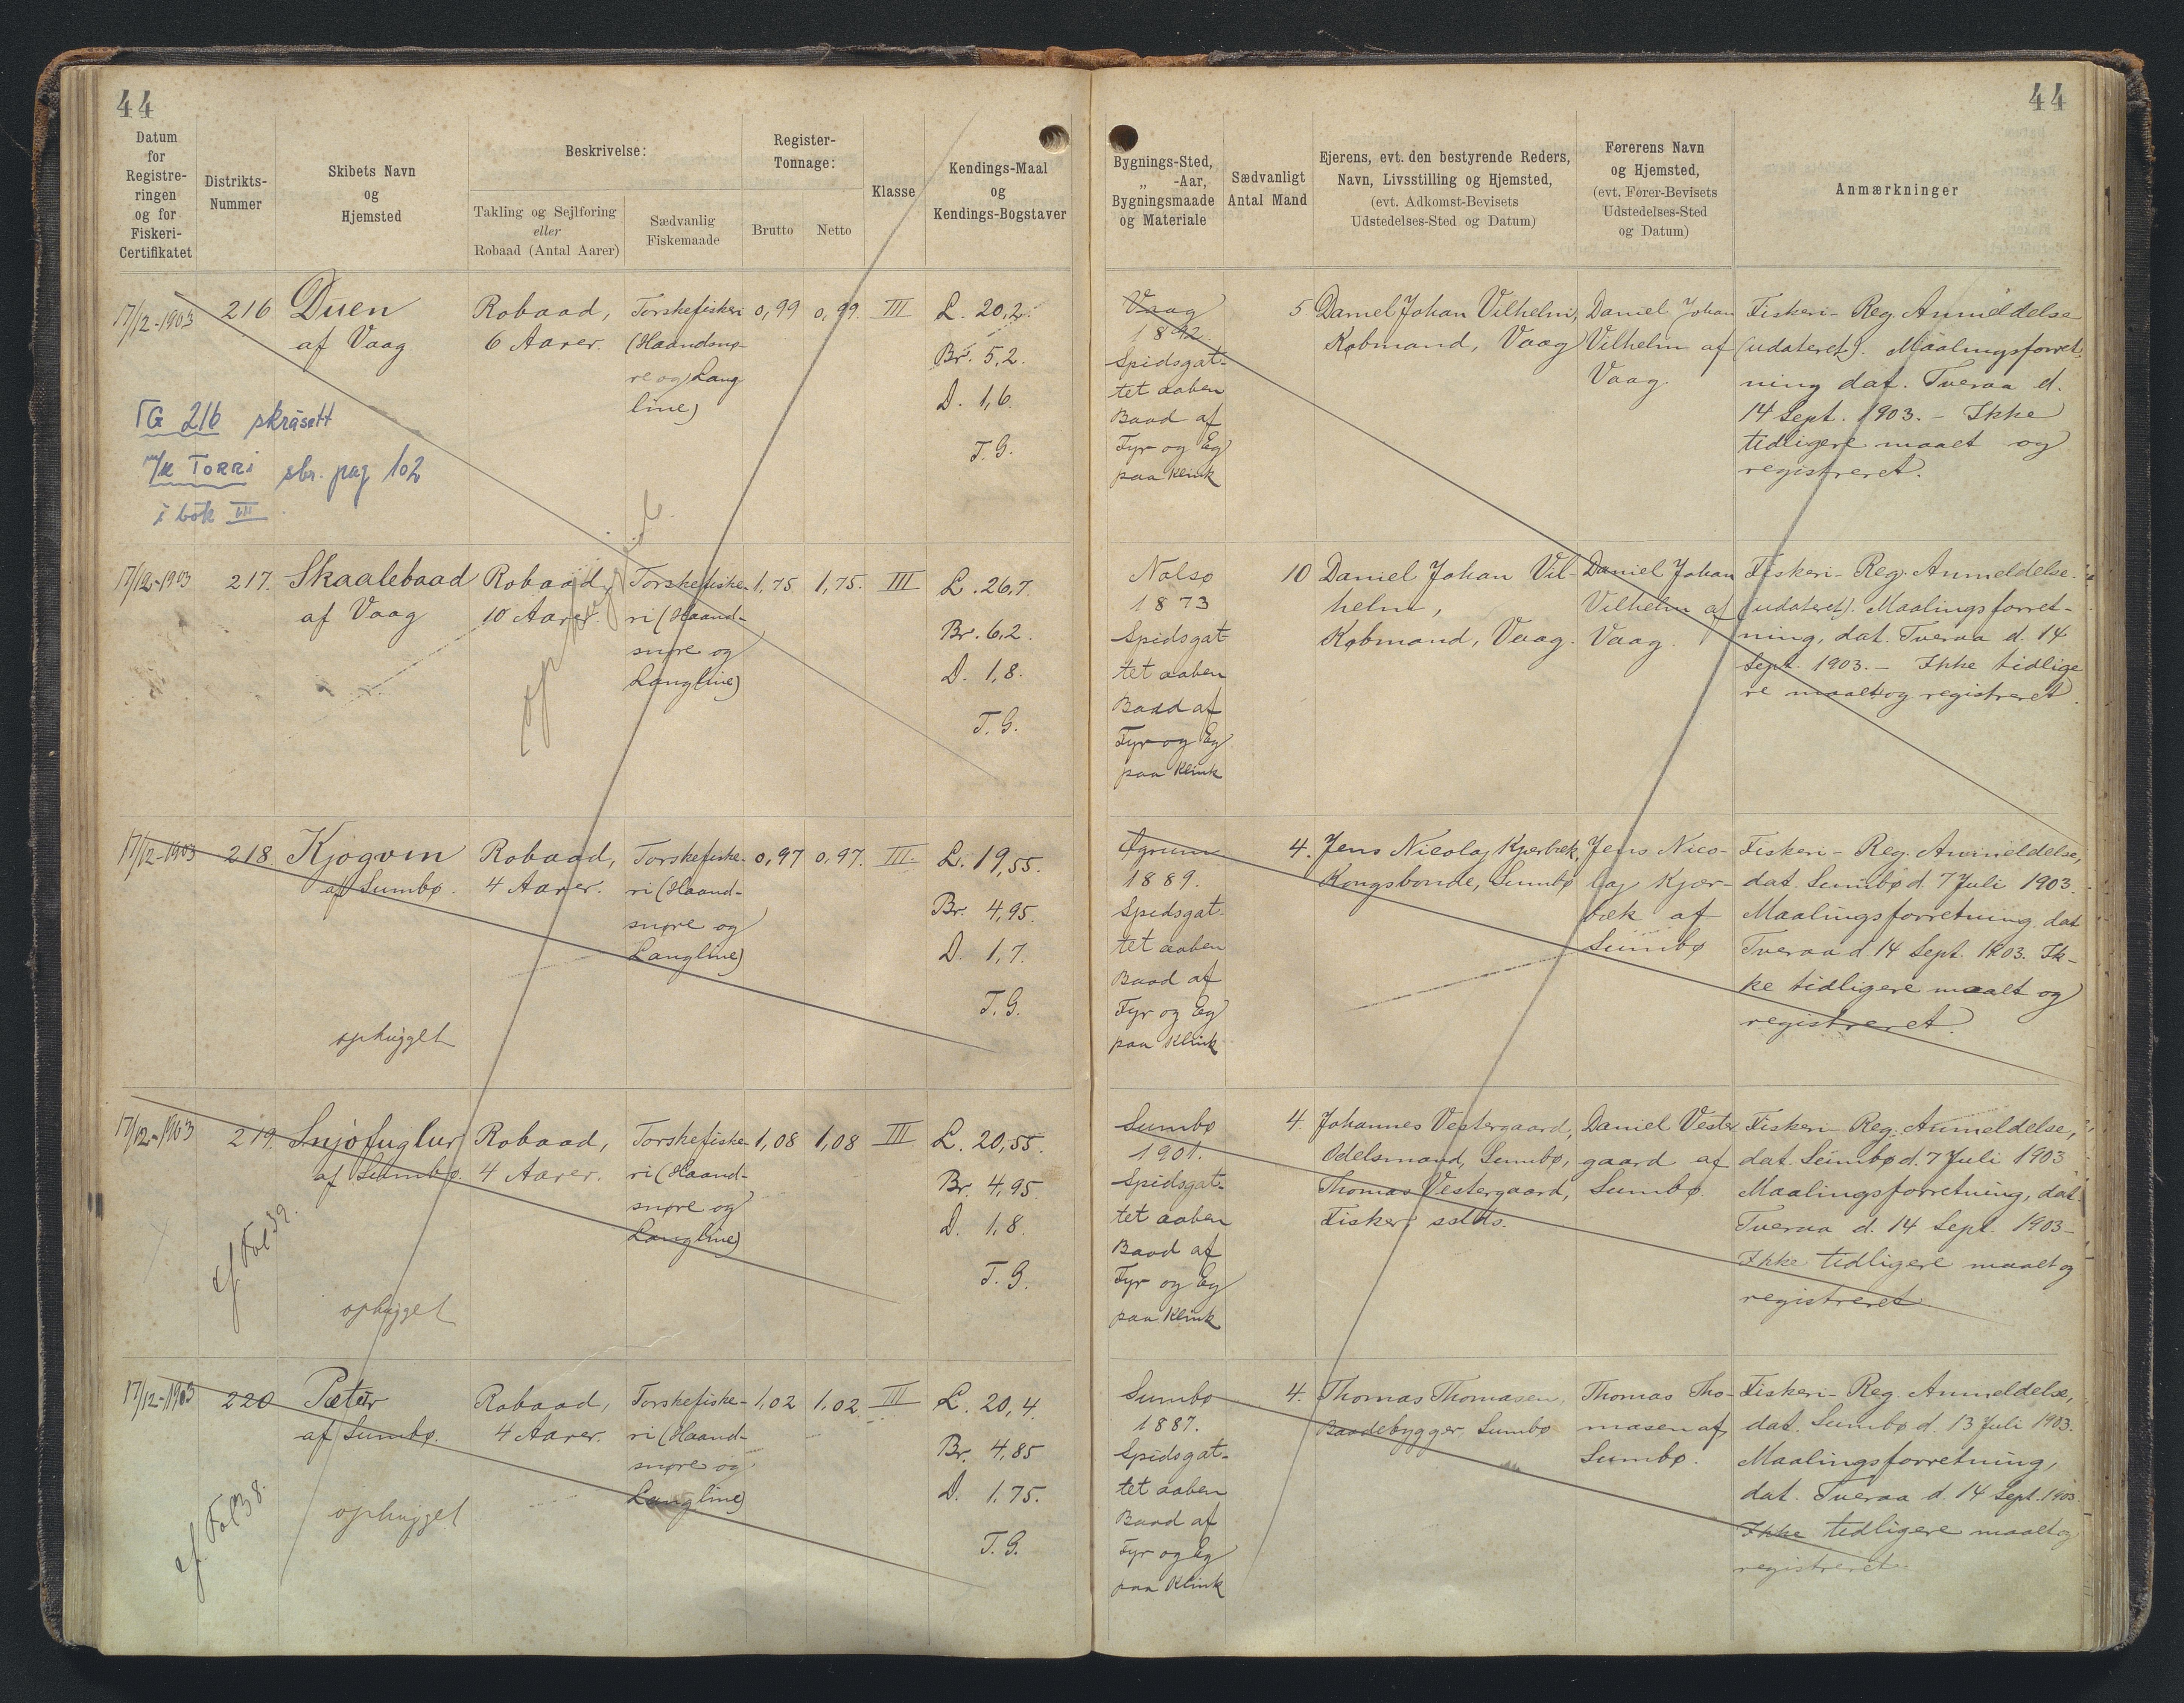 44
44
Datum
for
Registre-
ringen
og for
Fiskeri-
Certifikatet
Distrikts-
Nummer
Skibets Navn
og
Hjemsted
Beskrivelse:
Takling og Sejlføring
eller
Robaad (Antal Aarer)
Sædvanlig
Fiskemaade
Register-
Tonnage:
Brutto
Netto
Klasse
Kendings-Maal
og
Kendings-Bogstaver
Bygnings-Sted,
„ -Aar,
Bygningsmaade
og Materiale
Sædvanligt
Antal Mand
Ejerens, evt. den bestyrende Reders,
Navn, Livsstilling og Hjemsted,
(evt. Adkomst-Bevisets
Udstedelses-Sted og Datum)
Førerens Navn
og Hjemsted,
(evt. Fører-Bevisets
Udstedelses-Sted
og Datum)
Anmærkninger
17/12-1903
216
Duen
af Vaag
TG 216 skrásett
m/k TORRI sbr. pag 102
i bók III
Robaad,
6 Aarer.
Torskefiskeri
(Haandsnø-
re og Lang
line)
0,99
0,99
III
L. 20,2.
Br. 5,2.
D. 1,6.
T.G.
Vaag
1892
Spidsgat-
tet aaben
Baad af
Fyr og Eg
paa Klink
5
Daniel Johan Vilhelm,
Købmand, Vaag
Daniel Johan
Vilhelm af
Vaag.
Fiskeri-Reg. Anmeldelse
(udateret). Maalingsforret-
ning dat. Tveraa d.
14 Sept. 1903. - Ikke
tidligere maalt og
registreret.
17/12-1903
217.
Skaalebaad
af Vaag
Robaad,
10 Aarer.
Torskefiske-
ri (Haand-
snøre og
Langline)
1,75
1,75.
III
L. 26,7.
Br. 6,2.
D. 1,8.
T.G.
Nolsø
1873
Spidsgat
tet aaben
Baad af
Fyr og Eg
paa Klink
10
Daniel Johan Vil-
helm,
Købmand, Vaag.
Daniel Johan
Vilhelm af
Vaag.
Fiskeri-Reg. Anmeldelse.
(udateret). Maalingsforret-
ning, dat. Tveraa d. 14
Sept. 1903. - Ikke tidlige
re maalt og registreret.
17/12-1903
218.
Kjøgvin
af Sumbø.
ophugget
Robaad,
4 Aarer.
Torskefiske-
ri (Haand-
snøre og
Langline)
0,97
0,97.
III.
L. 19,55.
Br. 4,95.
D. 1,7.
T.G.
1889.
Spidsgat-
tet aaben
Baad af
Fyr og Eg
paa Klink
4.
Jens Nicolaj Kjærbæk,
Kongsbonde, Sumbø
Jens Nico-
laj Kjær-
bæk af
Sumbø
Fiskeri-Reg. Anmeldelse,
dat. Sumbø d. 7 Juli 1903.
Maalingsforretning, dat
Tveraa d. 14 Sept. 1903. Ik-
ke tidligere maalt og
registreret.
17/12-1903
219.
Snjofuglur
af Sumbø.
cf Fol 39.
ophugget
Robaad,
4 Aarer.
Torskefiske-
ri (Haand-
snøre og
Langline)
1,08
1,08
III
L. 20,55.
Br. 4,95
D. 1,8.
T.G.
Sumbø
1901.
Spidsgat-
tet aaben
Baad af
Fyr og Eg
paa Klink
4.
Johannes Vestergaard,
Odelsmand, Sumbø,
Thomas Vestergaard,
Fisker, sstds.
Daniel Vester
gaard af
Sumbø.
Fiskeri-Reg. Anmeldelse,
dat. Sumbø d. 7 Juli 1903
Maalingsforretning, dat.
Tveraa d. 14 Sept. 1903-
Ikke tidligere maalt og
registreret
17/12-1903
220
Peter
af Sumbø.
cf. Fol 38.
ophugget
Robaad,
4 Aarer.
Torskefiske-
ri (Haand-
snøre og
Langline)
1,02
1,02.
III
L. 20,4.
Br. 4,85
D. 1,75.
T.G.
Sumbø
1887.
Spidsgat-
tet aaben
Baad af
Fyr og Eg
paa Klink
4.
Thomas Thomasen,
Baadebygger, Sumbø
Thomas Tho-
masen af
Sumbø.
Fiskeri-Reg. Anmeldelse,
dat. Sumbø d. 13 Juli 1903.
Maalingsforretning,
dat. Tveraa d. 14 Sept. 1903.
Ikke tidligere maalt og
registreret.